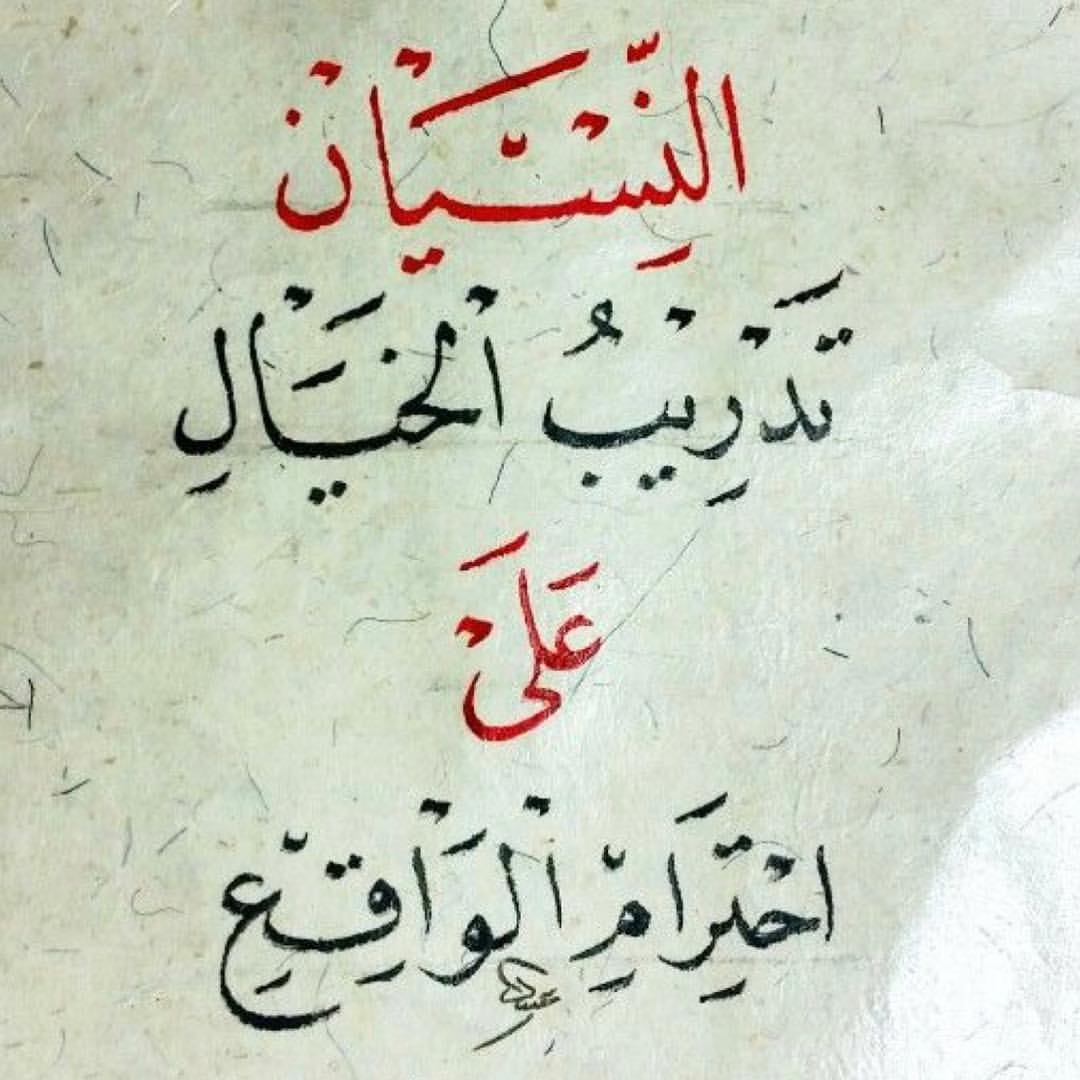 النِّسْيَانْ
تَدْرِيْبُ الْخَيَالِ
عَلَىْ
احْتِرَامِ الْوَاقِعِ